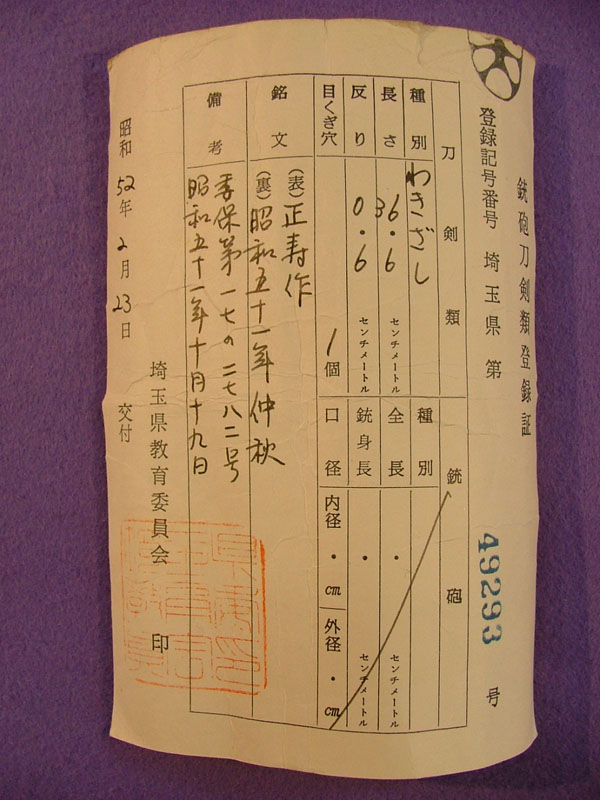 銃砲刀剣類登録証
登録記号番号 埼玉県 第 49293 号
刀剣類
種別 わきざし
長さ 36.6 センチメートル
反り 0.6 センチメートル
目くぎ穴 1個
銃砲
種別
全長 ・ センチメートル
銃身長 ・ センチメートル
口径 内径 ・ cm 外径 ・ cm
銘文 (表) 正寿作
(裏) 昭和五十一年仲秋
備考 委保第一七の二七八二号
昭和五十一年十月十九日
昭和52年2月23日 交付
埼玉県教育委員会 印